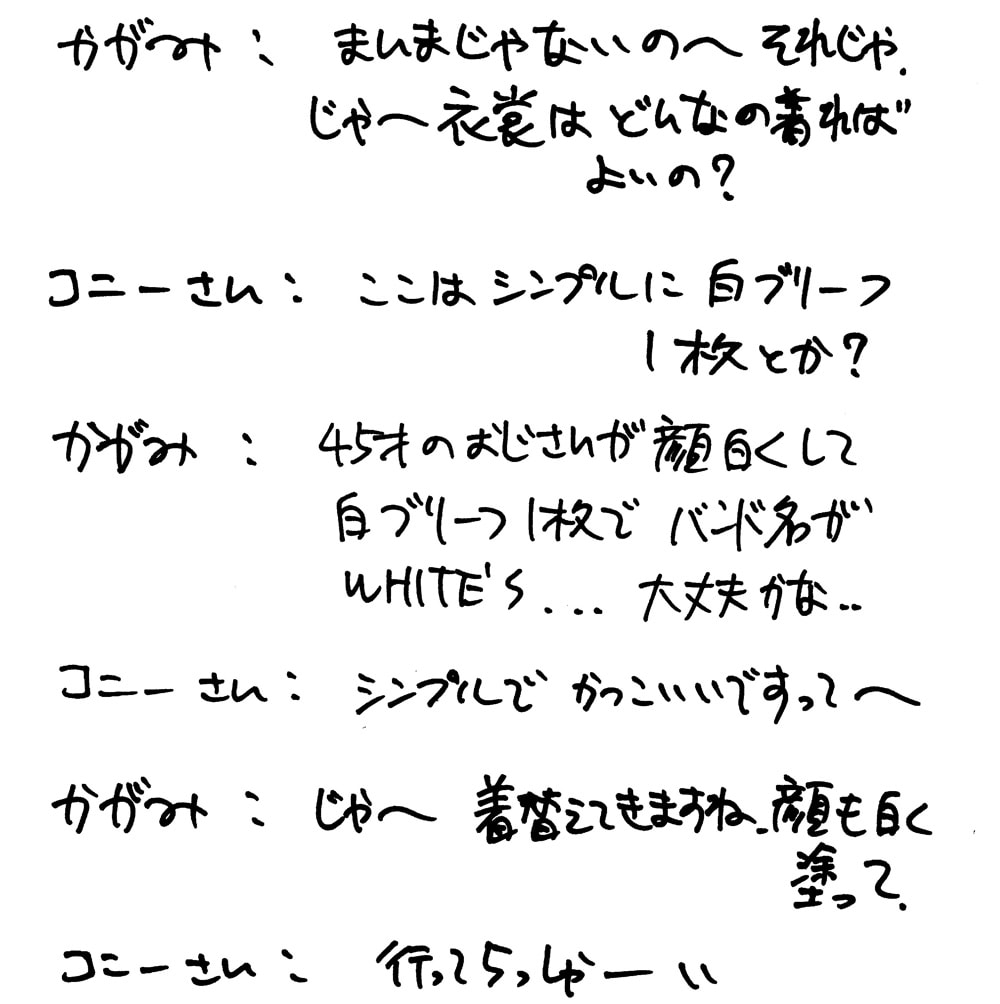 かがみ: まんまじゃないの〜 それじゃ.
じゃ〜衣裳は どんなの着れば
よいの?
コニーさん: ここは シンプルに 白ブリーフ
1枚とか?
かがみ: 45才のおじさんが 顔白くして
白ブリーフ1枚で バンド名が
WHITE'S... 大丈夫かな..
コニーさん: シンプルで かっこいいですって〜
かがみ: じゃ〜 着替えてきますね.顔も白く
塗って.
コニーさん: 行ってらっしゃーい